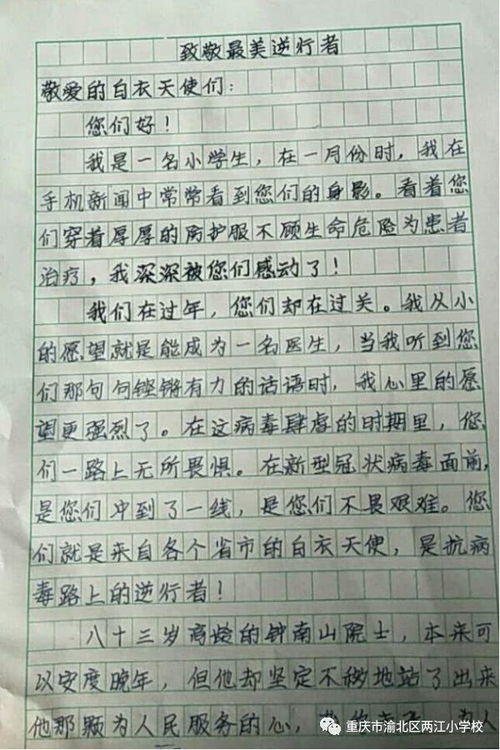 致敬最美逆行者
敬爱的白衣天使们：
您们好！
我是一名小学生，在一月份时，我在
手机新闻中常常看到您们的身影。看着您
们穿着厚厚的防护服不顾生命危险为患者
治疗，我深深被您们感动了！
我们在过年，您们却在过关。我从小
的愿望就是能成为一名医生，当我听到您
们那句句铿锵有力的话语时，我心里的愿
望更强烈了。在这病毒肆虐的时期里，您
们一路上无所畏惧。在新型冠状病毒面前，
是您们冲到了一线，是您们不畏艰难。您
们就是来自各个省市的白衣天使，是抗病
毒路上的逆行者！
八十三岁高龄的钟南山院士，本来可
以安度晚年，但他却坚定不移地站了出来
他那颗为人民服务的心，
重庆市渝北区两江小学校